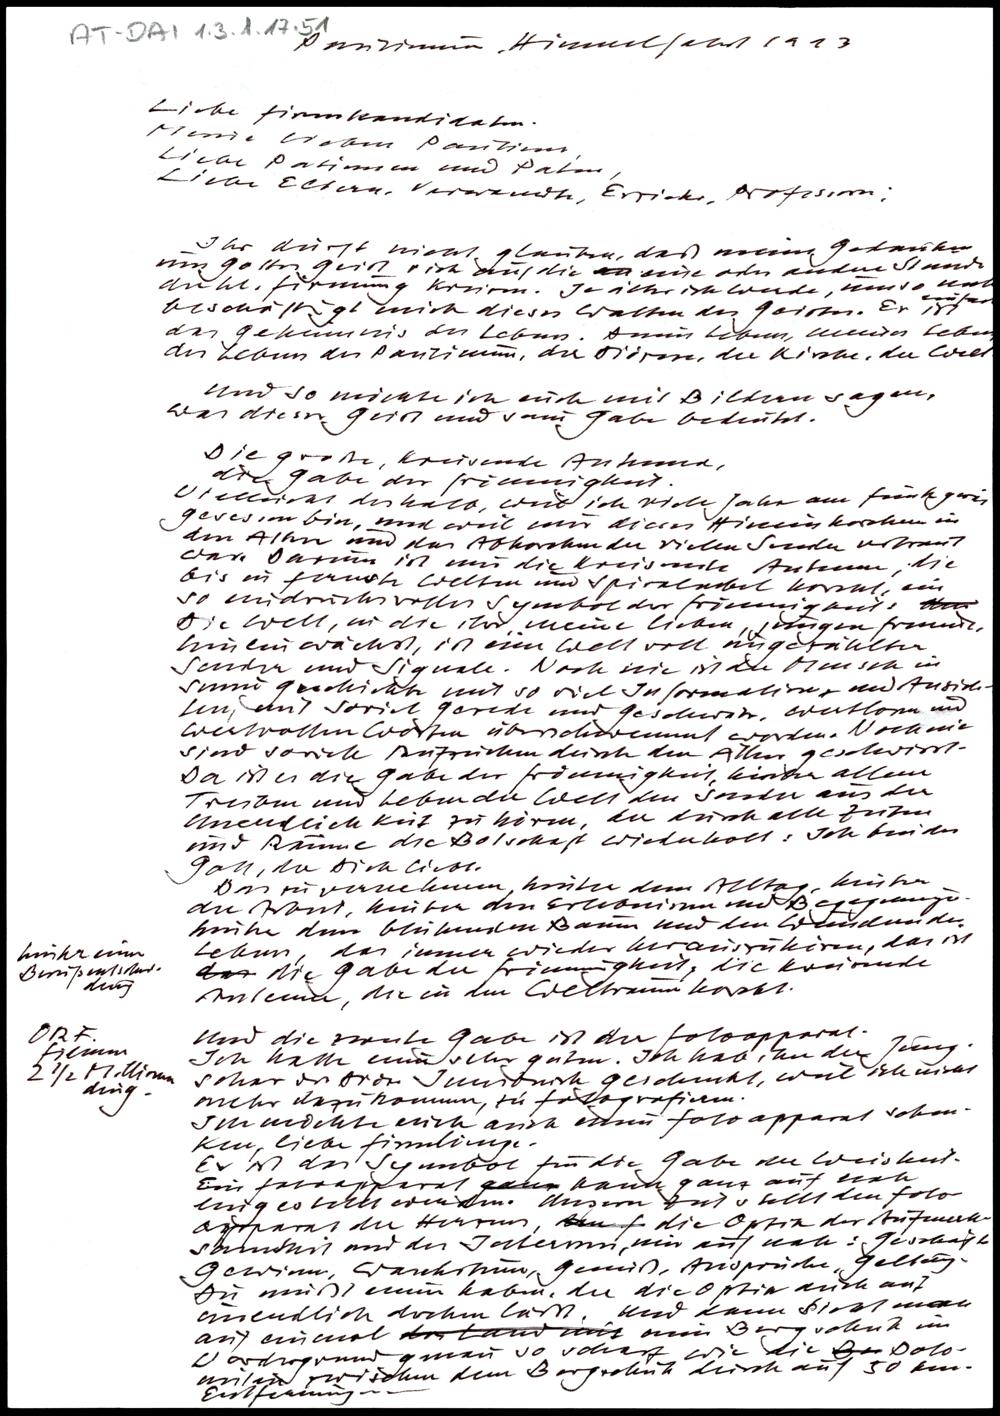 AT-DAI 1.3.1.17.51
Paulinum, Himmelfahrt 1993
Liebe Firmkandidaten.
Meine lieben Pauliner,
Liebe Patinnen und Paten,
Liebe Eltern, Verwandte, Erzieher, Professoren:
Ihr dürft nicht glauben, daß meine Gedanken
um Gottes Geist sich auf die eine oder andere Stunde
d. hl. Firmung kreisen. Je älter ich werde, umso mehr
beschäftigt mich dieses Walten des Geistes. Er ist einfach
das Geheimnis des Lebens. Deines Lebens, meines Lebens
des Lebens des Paulinum, der Diözese, der Kirche, der Welt
Und so möchte ich euch mit Bildern sagen,
was dieser Geist und seine Gabe bedeutet.
Die große, kreisende Antenne,
die Gabe der Frömmigkeit.
Vielleicht deshalb, weil ich viele Jahre am Funkgerät
gesessen bin, und weil mir dieses Hineinhorchen in
den Äther und das Abhorchen der vielen Sender vertraut
war. Darum ist mir die kreisende Antenne, die
bis in fernste Welten und Spiralnebel horcht, ein
so eindrucksvolles Symbol der Frömmigkeit:
Die Welt, in die ihr, meine lieben, jungen Freunde,
hineinwächst, ist eine Welt voll ungezählter
Sender und Signale. Noch nie ist der Mensch in
seiner Geschichte mit so viel Informationen und Ansich-
ten, mit soviel Gerede und Geschwätz, wertlosen und
wertvollen Worten überschwemmt worden. Noch nie
sind soviele durch den Äther geschwirrt.
Da ist es die Gabe der Frömmigkeit, hinter allem
Treiben und Leben der Welt den Sender aus der
Unendlichkeit zu hören, der durch alle Zeiten
und Räume die Botschaft wiederholt: Ich bin der
Gott, der Dich liebt.
Das zu vernehmen, hinter dem Alltag, hinter
der Arbeit, hinter den Erlebnissen und Begegnungen
hinter dem blühenden Baum und den Wunden des
Lebens, das immer wieder herauszuhören, das ist
die Gabe der Frömmigkeit, die kreisende
Antenne, die in den Weltraum horcht.
hinter einer
Berufsentschei-
dung
Und die zweite Gabe ist der Fotoapparat.
Ich hatte einen sehr guten. Ich hab ihn der Jung-
schar der Diöz. Innsbruck geschenkt, weil ich nicht
mehr dazukomme, zu fotografieren.
Ich möchte euch auch einen Fotoapparat schen-
ken, liebe Firmlinge.
ORF.
Firmung
2 1/2 Millionen
Er ist das Symbol für die Gabe der Weisheit.
Ein Fotoapparat kann ganz auf nah
eingestellt werden. Unsere Zeit stellt den Foto
apparat des Herzens, die Optik der Aufmerk-
samkeit und des Interesses, nur auf nah: Geschäft
Gewinn, Wachstum, Genuß, Ansprüche, Geltung.
Du mußt einen haben, der die Optik auch auf
unendlich drehen läßt. Und dann sieht man
auf einmal mein Bergschuh im
Vordergrund genau so scharf wie die Dolo-
miten zwischen dem Bergschuh durch auf 50 km
Entfernung --